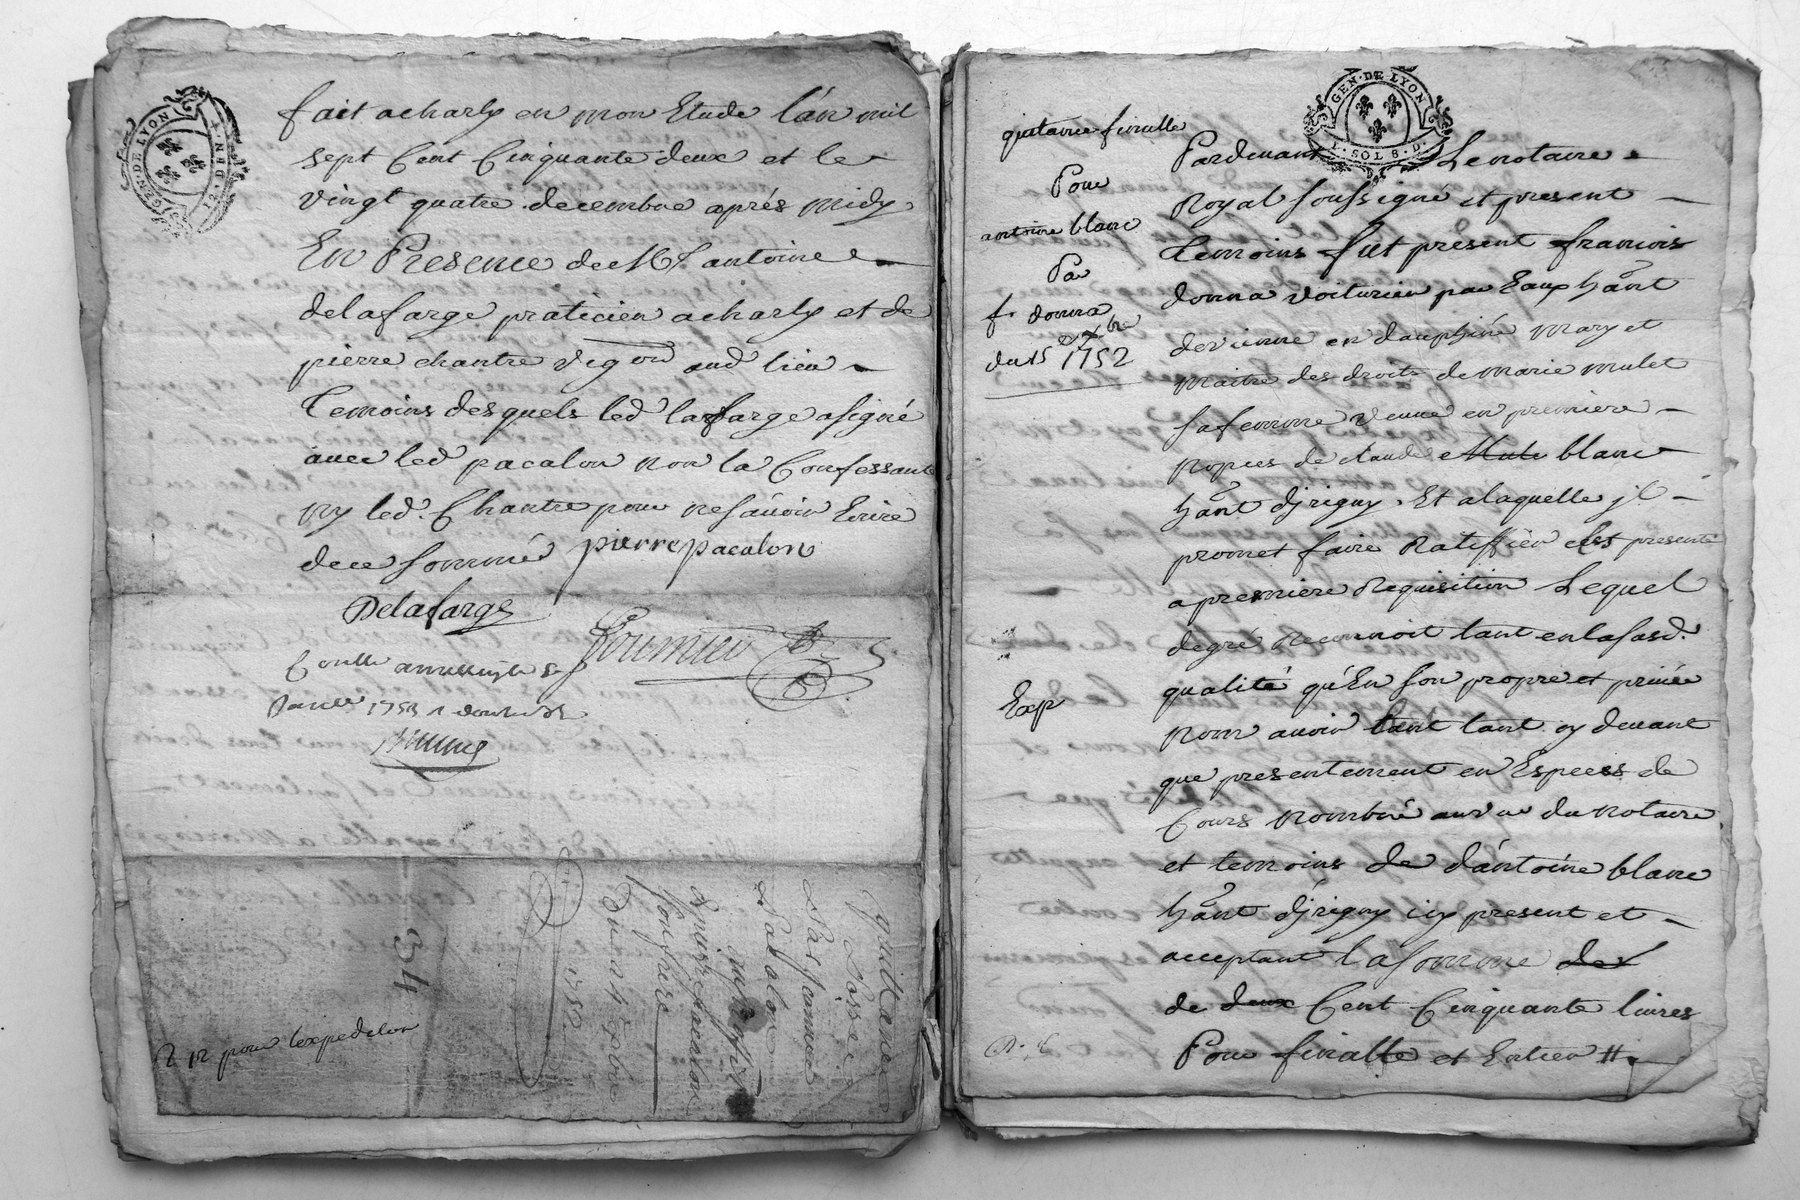 GEN·DE LYON
fait a charly en mon Etude l'an mil
sept Cent Cinquante deux et le
vingt quatre decembre aprés Midy
En Presence de Mr. antoine
delafarge praticien a charly et de
pierre chantre vigon aud lieu
Temoins desquels led lafarge a signé
avec led pacalon non la Confessante
ny led. Chantre pour ne sávoir Ecrire
de ce sommé pierre pacalon
Delafarge
Fournier
1753
34
Quittance
1752
2 12 pour lexpedition
GEN·DE LYON
1·SOL 8·D·
quitance finalle
Pour
antoine blanc
Par
f. donna
du 15 Xbre
1752
Exp
Pardevant Le notaire
Royal soussigné et present
Temoins fut présent francois
donna voiturier par Eaux hãnt
de vienne en dauphiné Mary et
Maitre des droits de Marie mulet
sa femme veuve en premiere
Nopces de claude blanc
hãnt djrigny. Et a laquelle jl
promet faire Ratiffier ces presente
a premiere Requisition Lequel
de gré Reconnoit tant en lasusd.
qualité qu'En son propre et privée
nom avoir tant cy devant
que presentement en Especes de
Cours Nombré au vu du Notaire
et temoins de d'antoine blanc
hãnt djrigny icy present et
acceptant la somme de
de deux Cent Cinquante livres
Pour finalle et Entier #